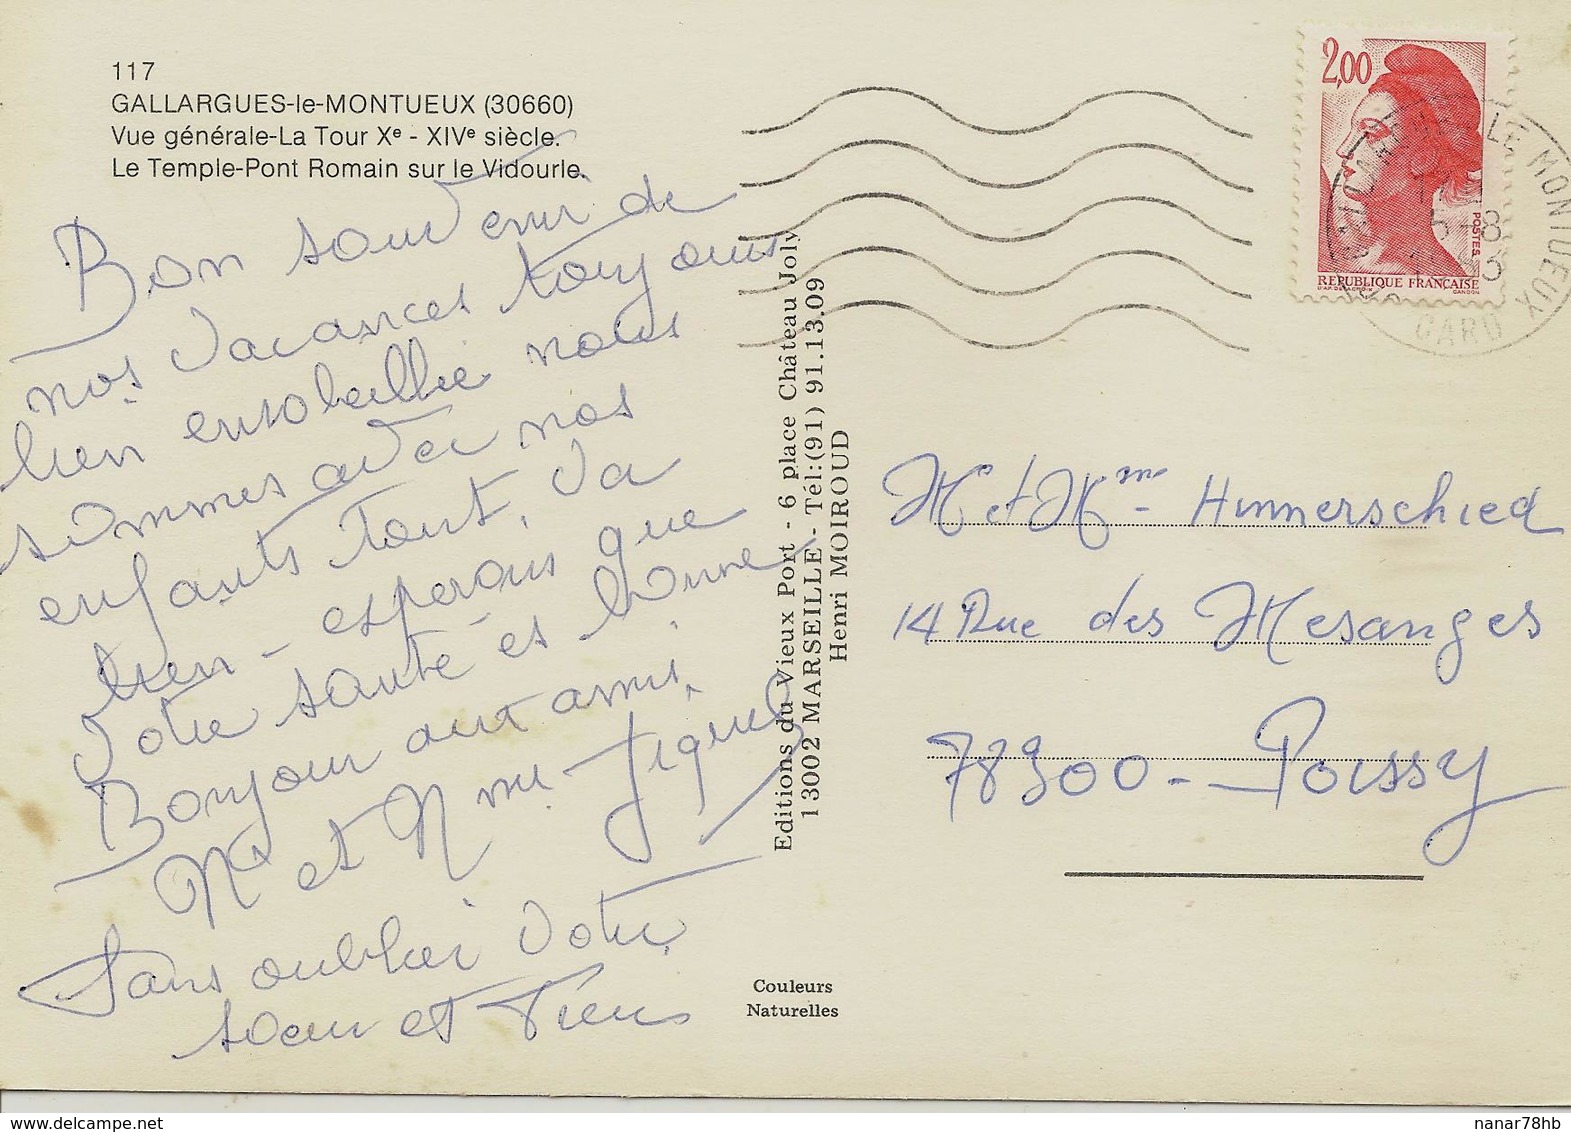 117
GALLARGUES-le-MONTUEUX (30660)
Vue générale-La Tour Xe - XIVe siècle.
Le Temple-Pont Romain sur le Vidourle.
Bon souvenir de
nos vacances toujours
bien ensoleillée nous
sommes avec nos
enfants tout va
bien - esperons que
votre santé es bonne
Bonjour aux amis.
Mr et Mme
Sans oublier votre
soeur et
Editions du Vieux Port - 6 place Château Joly
13002 MARSEILLE - Tél:(91) 91.13.09
Henri MOIROUD
Couleurs
Naturelles
2,00
POSTES
REPUBLIQUE FRANÇAISE
D'AP. DELACROIX GANDON
LE MONTUEUX
5-8
GARD
Mr et Mme Himmerschied
14 Rue des Mesanges
78300 - Poissy
nanar78hb